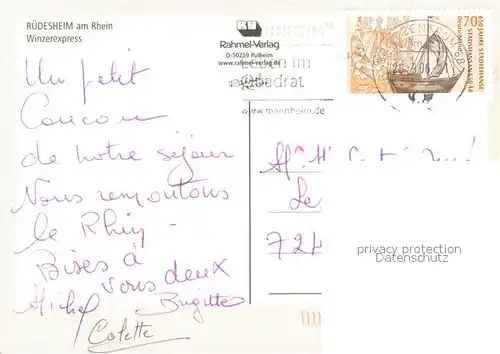 RÜDESHEIM am Rhein
Winzerexpress
Rahmel-Verlag
D-50259 Pulheim
www.rahmel-verlag.de
Leben im
Quadrat
www.mannheim.de
650 JAHRE STÄDTEHANSE
Deutschland
70
Un petit
Coucou
de notre séjour
Nous remontons
le Rhin
Bises à
vous deux
Michel Brigitte
Colette
Le
72
privacy protection
Datenschutz